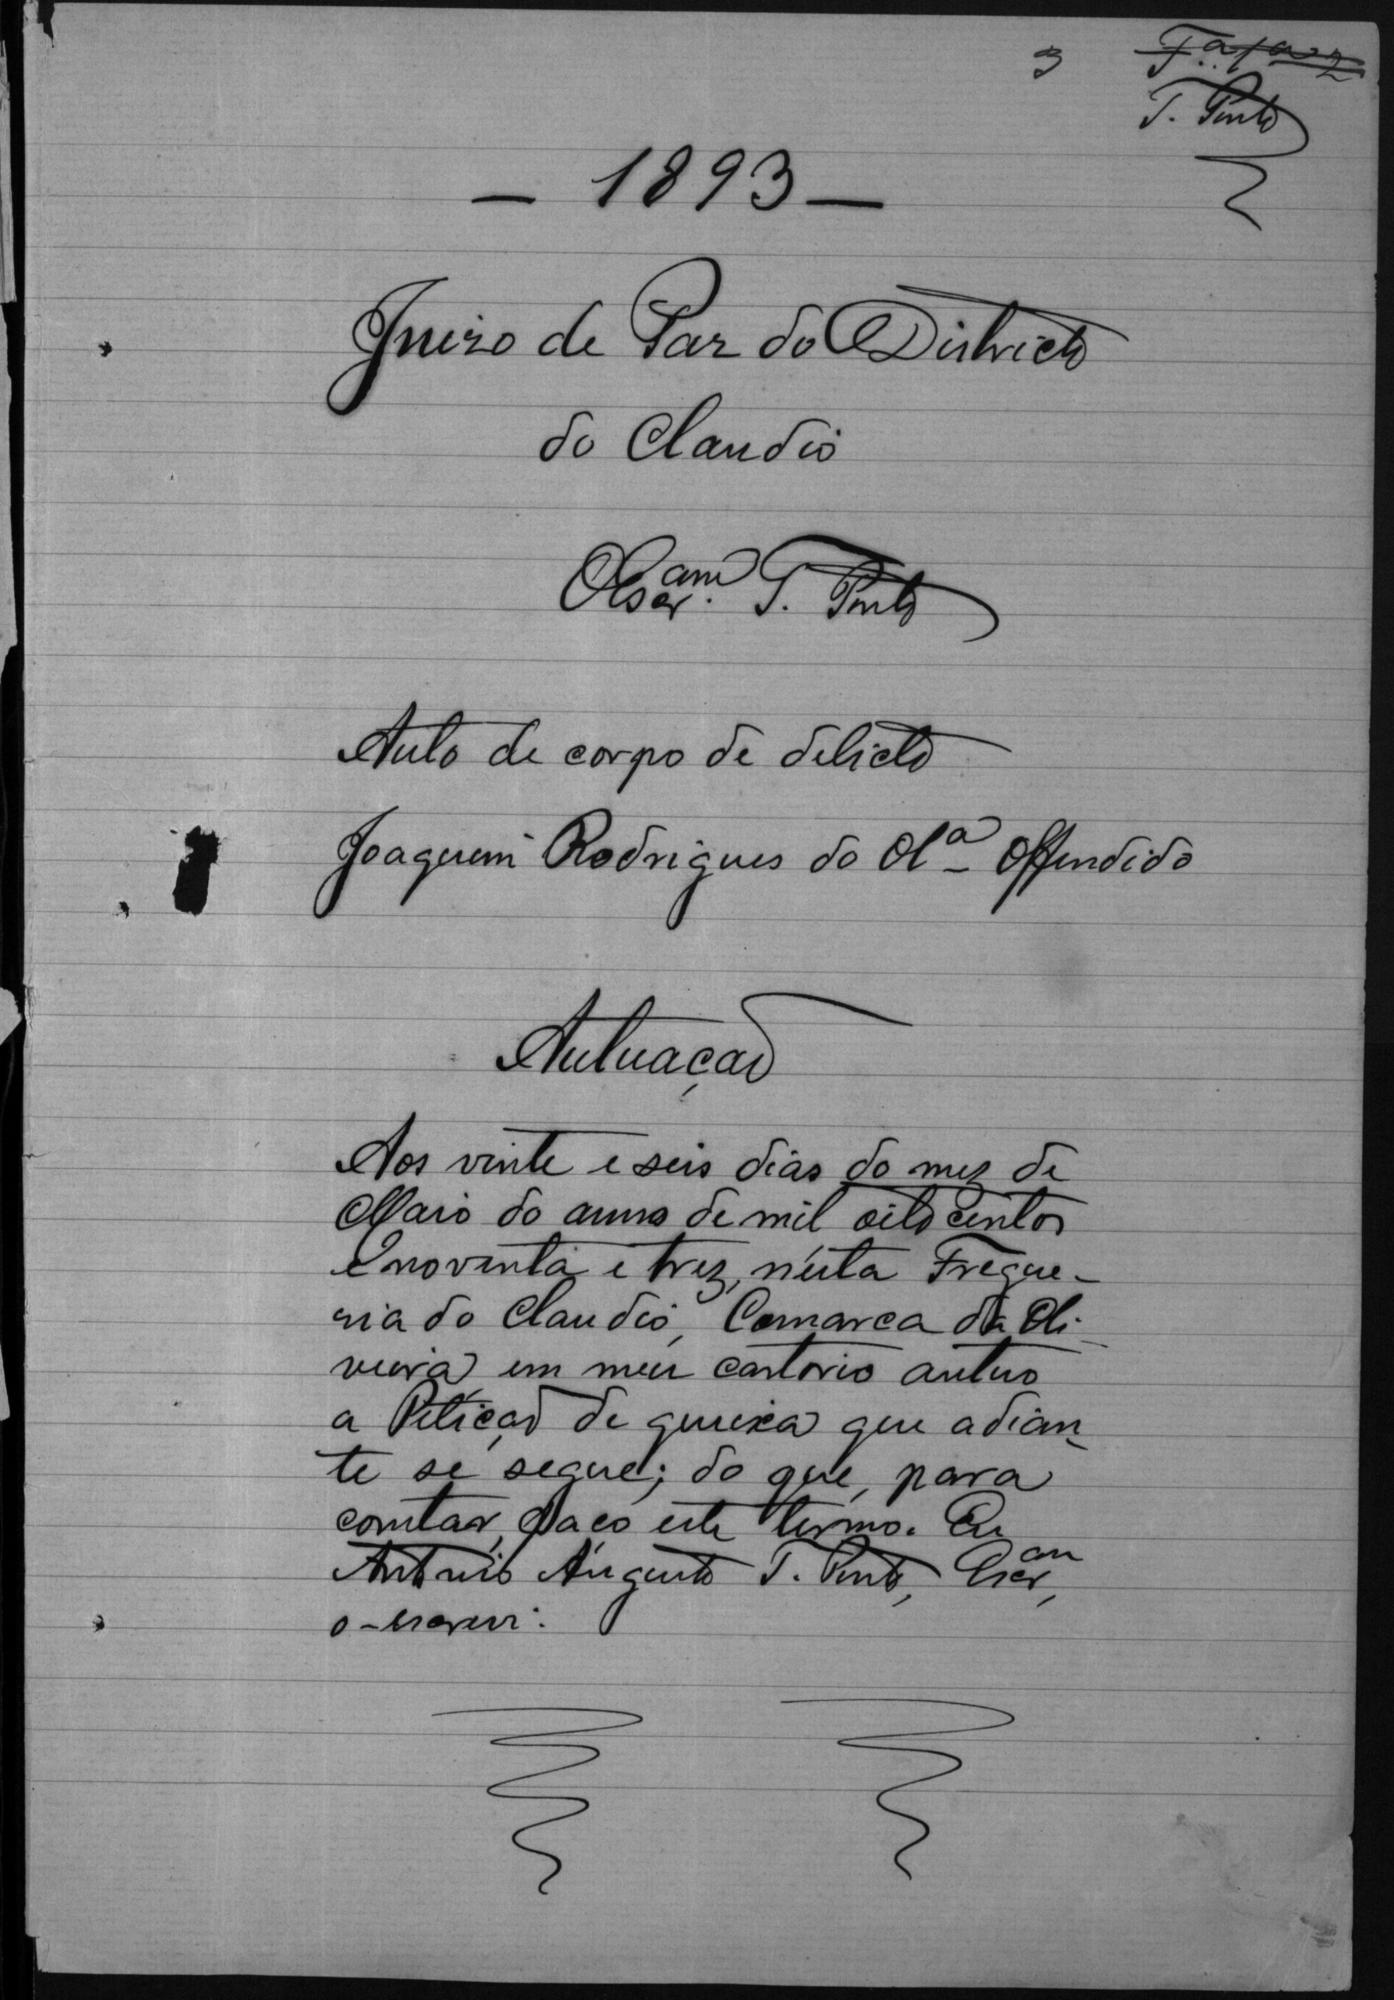 3
T. Pinto
— 1893 —
Juizo de Paz do Districto
do Claudio
Escr.am T. Pinto
Auto de corpo de delicto
Joaquem Rodrigues do Ol.a Offendido
Autuação
Aos vinte e seis dias do mez de
Maio do anno de mil oito centos
e noventa e trez, nésta Fregue-
sia do Claudio, Comarca da Oli-
veira em meu cartorio autuo
a Petição de queixa que adian-
te se segue; do que, para
constar, faço este termo. Eu
Antonio Augusto T. Pinto, Escr.am,
o-escrevi.